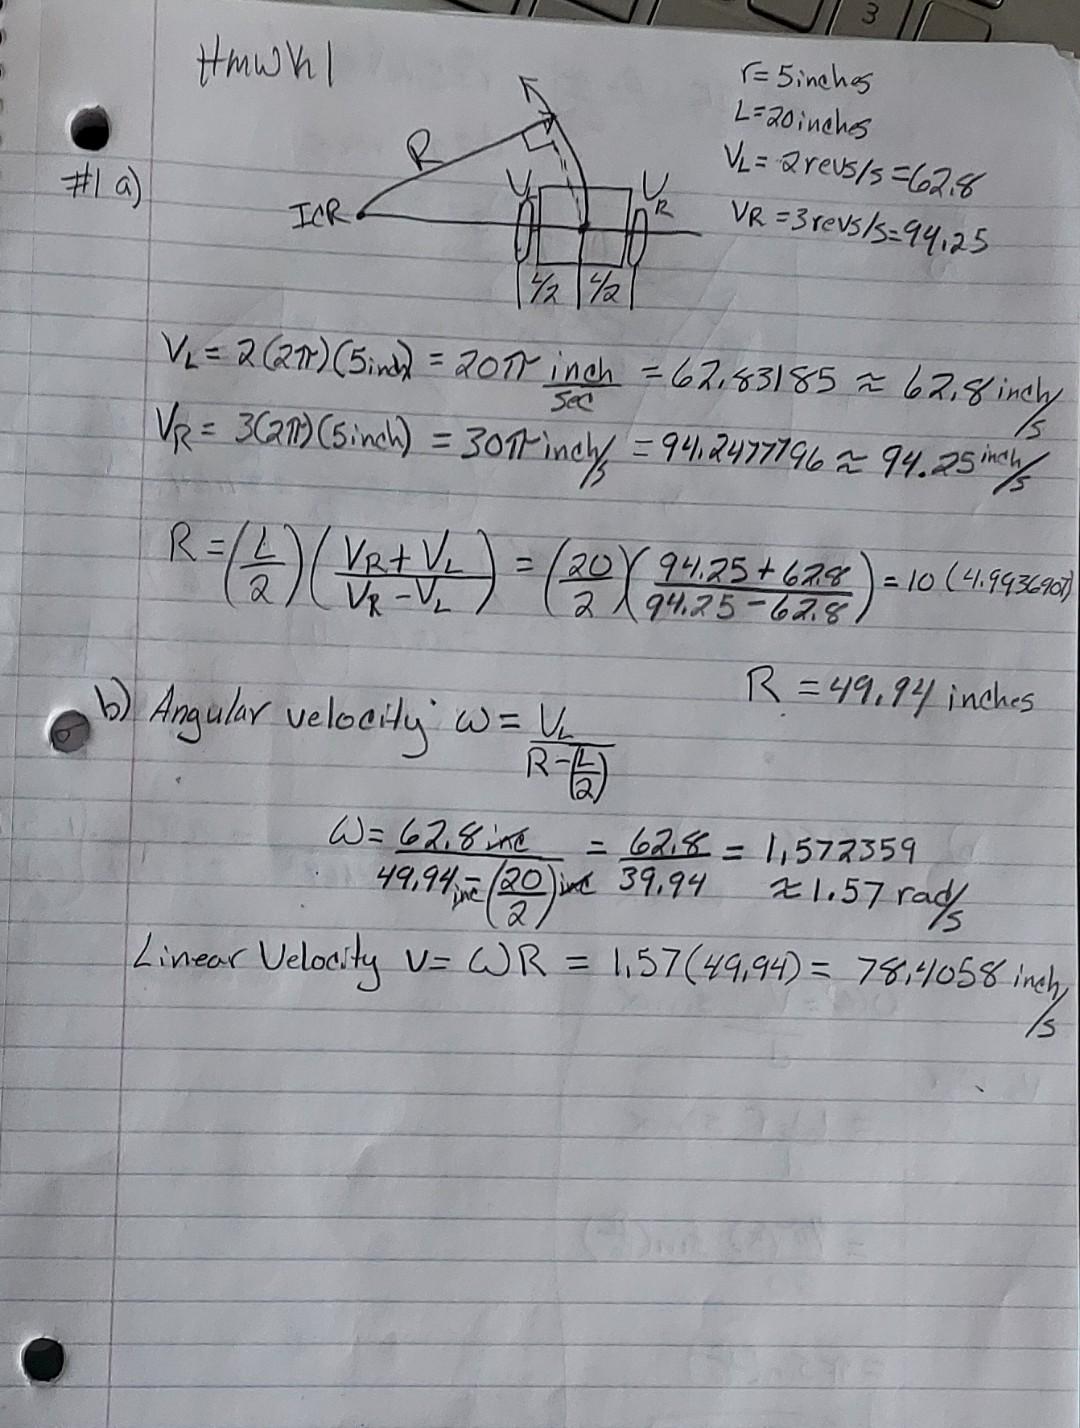 3
Hmwk 1
r = 5 inches
L = 20 inches
VL = 2 revs/s = 62.8
VR = 3 revs/s = 94.25
#1 a)
R
ICR
VL
VR
L/2 L/2
VL = 2(2π)(5 inch) = 20π inch/sec = 62.83185 ≈ 62.8 inch/s
VR = 3(2π)(5 inch) = 30π inch/s = 94.2477796 ≈ 94.25 inch/s
R = (L/2)((VR + VL)/(VR - VL)) = (20/2)((94.25 + 62.8)/(94.25 - 62.8)) = 10 (4.9936407)
R = 49.94 inches
b) Angular velocity ω = VL/(R - (L/2))
ω = 62.8 inc/(49.94 inc - (20/2) inc) = 62.8/39.94 = 1.572359
≈ 1.57 rad/s
Linear Velocity v = ωR = 1.57(49.94) = 78.4058 inch/s